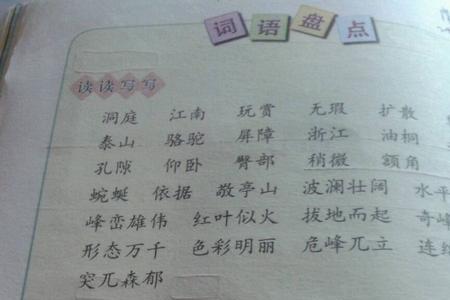 词语盘点
读读写写
洞庭 江南 玩赏 无瑕 扩散
泰山 骆驼 屏障 浙江 油桐
孔隙 仰卧 臀部 稍微 额角
蜿蜒 依据 敬亭山 波澜壮阔 水平
峰峦雄伟 红叶似火 拔地而起 奇峰
形态万千 色彩明丽 危峰兀立 连绵
突兀森郁